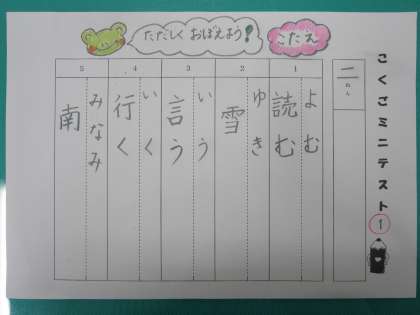 ただしくおぼえよう!
こたえ
こくごミニテスト
1
二
ねん
1
よむ
読む
2
ゆき
雪
3
いう
言う
4
いく
行く
5
みなみ
南